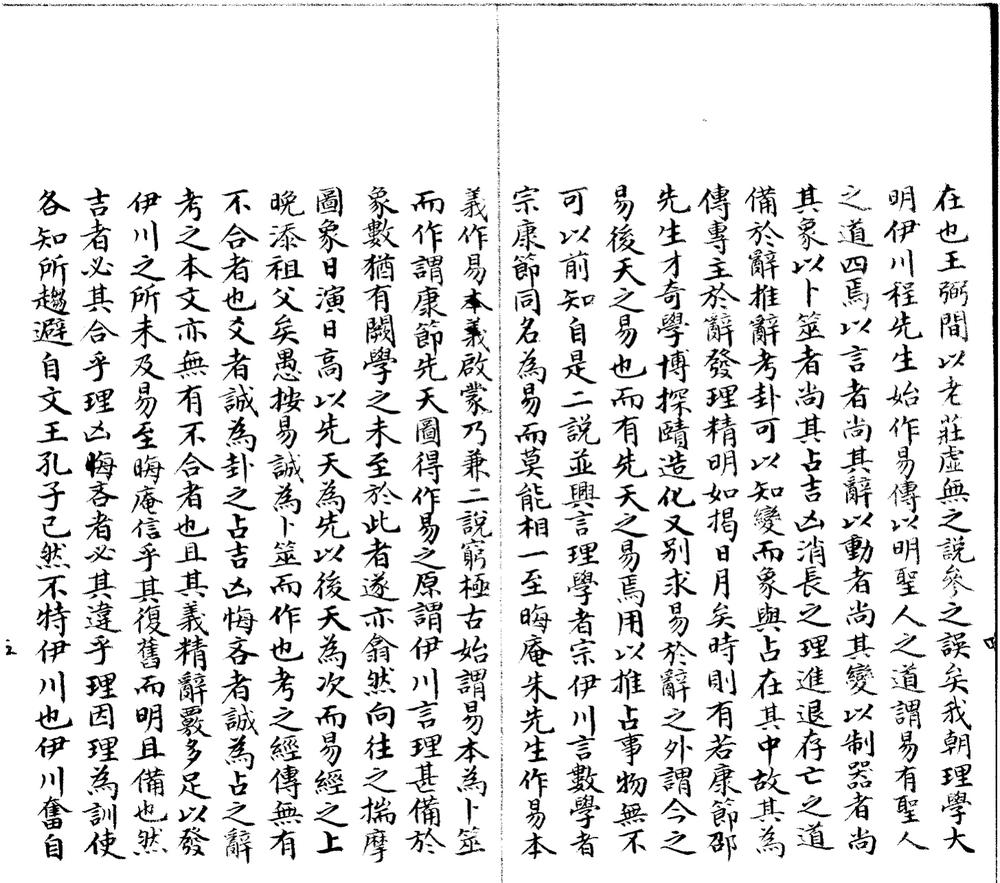 在也王弼間以老莊虛無之說參之誤矣我朝理學大
明伊川程先生始作易傳以明聖人之道謂易有聖人
之道四焉以言者尚其辭以動者尚其變以制器者尚
其象以卜筮者尚其占吉凶消長之理進退存亡之道
備於辭推辭考卦可以知變而象與占在其中故其為
傳專主於辭發理精明如揭日月矣時則有若康節邵
先生才奇學博探賾造化又別求易於辭之外謂今之
易後天之易也而有先天之易焉用以推占事物無不
可以前知自是二說並興言理學者宗伊川言數學者
宗康節同名為易而莫能相一至晦庵朱先生作易本
義作易本義啟蒙乃兼二說窮極古始謂易本為卜筮
而作謂康節先天圖得作易之原謂伊川言理甚備於
象數猶有闕學之未至於此者遂亦翕然向往之揣摩
圖象日演日高以先天為先以後天為次而易經之上
晚添祖父矣愚按易誠為卜筮而作也考之經傳無有
不合者也爻者誠為卦之占吉凶悔吝者誠為占之辭
考之本文亦無有不合者也且其義精辭覈多足以發
伊川之所未及易至晦庵信乎其復舊而明且備也然
吉者必其合乎理凶悔吝者必其違乎理因理為訓使
各知所趨避自文王孔子已然不特伊川也伊川奮自
四
五